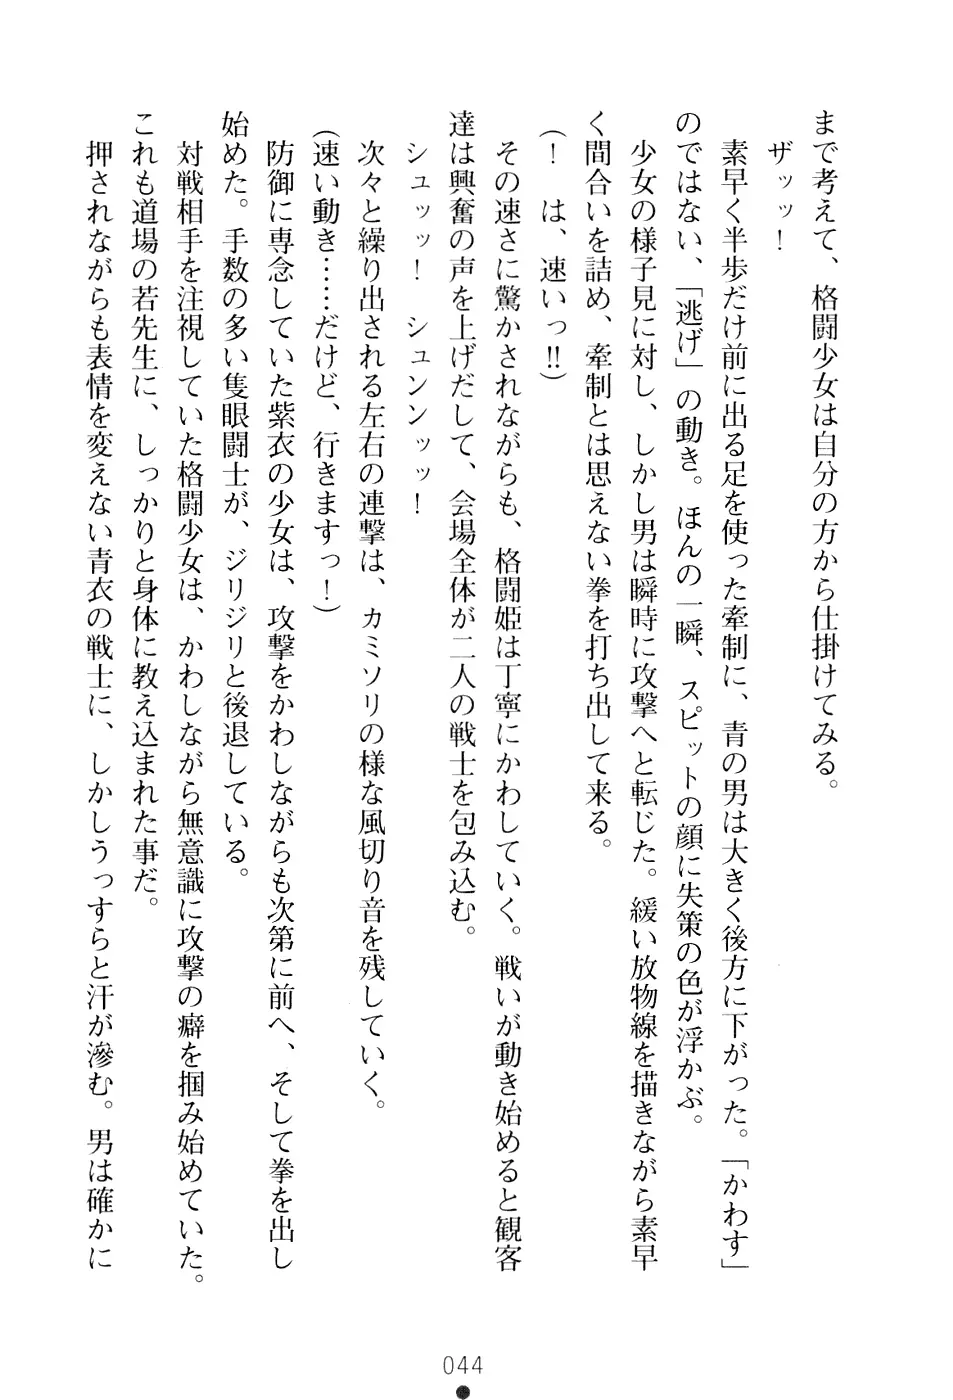 まで考えて、格闘少女は自分の方から仕掛けてみる。
ザッッ！
素早く半歩だけ前に出る足を使った牽制に、青の男は大きく後方に下がった。「かわす」
のではない、「逃げ」の動き。ほんの一瞬、スピットの顔に失策の色が浮かぶ。
少女の様子見に対し、しかし男は瞬時に攻撃へと転じた。緩い放物線を描きながら素早
く間合いを詰め、牽制とは思えない拳を打ち出して来る。
（！　は、速いっ!!）
その速さに驚かされながらも、格闘姫は丁寧にかわしていく。戦いが動き始めると観客
達は興奮の声を上げだして、会場全体が二人の戦士を包み込む。
シュッッ！　シュンンッッ！
次々と繰り出される左右の連撃は、カミソリの様な風切り音を残していく。
（速い動き……だけど、行きますっ！）
防御に専念していた紫衣の少女は、攻撃をかわしながらも次第に前へ、そして拳を出し
始めた。手数の多い隻眼闘士が、ジリジリと後退している。
対戦相手を注視していた格闘少女は、かわしながら無意識に攻撃の癖を掴み始めていた。
これも道場の若先生に、しっかりと身体に教え込まれた事だ。
押されながらも表情を変えない青衣の戦士に、しかしうっすらと汗が滲む。男は確かに
044